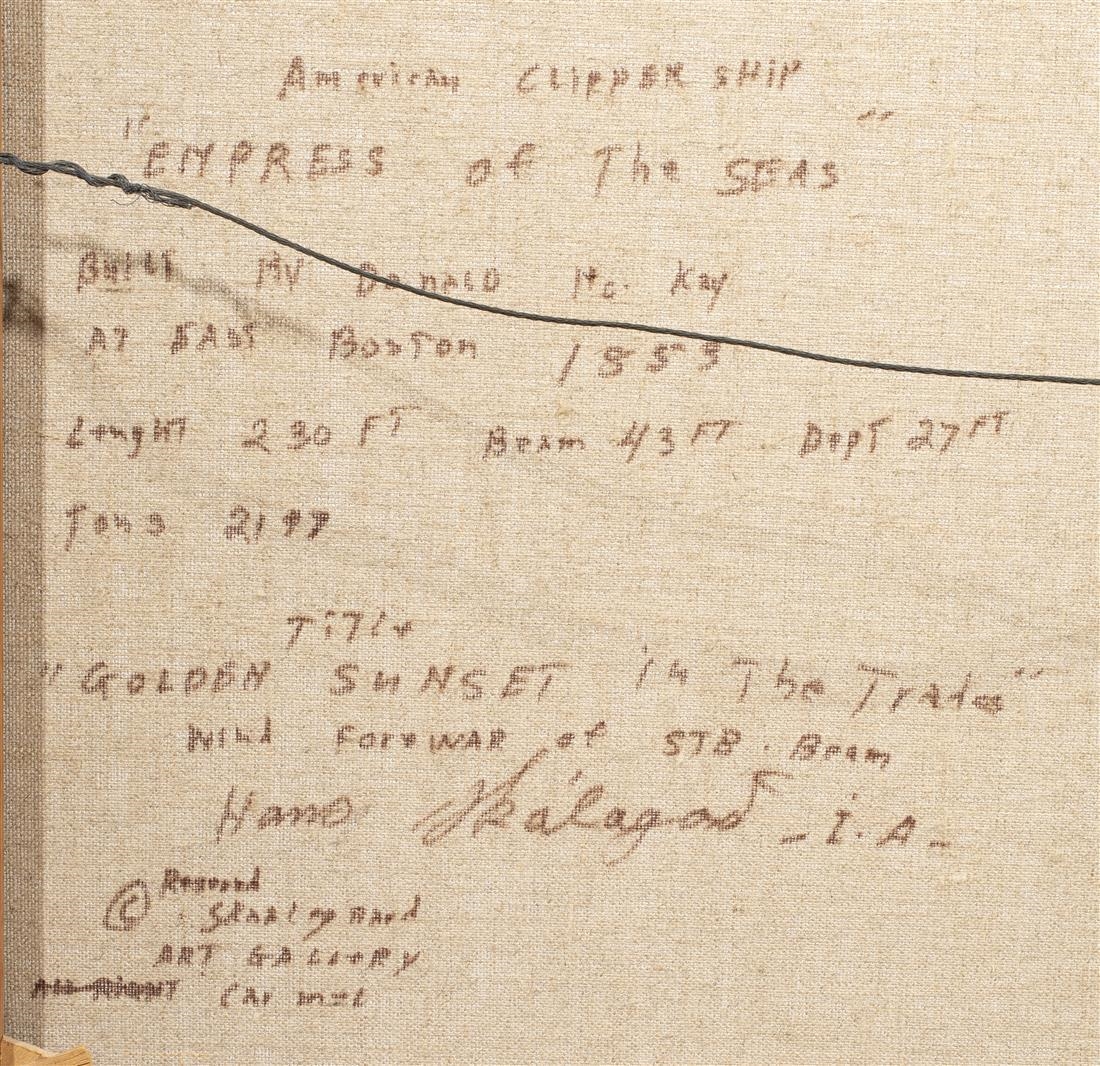 American CLIPPER SHIP
"EMPRESS of The SEAS"
Built BY DONALD Mc. Kay
AT EAST BOSTON 1853
Lenght 230 FT Beam 43 FT. Dept 27 FT
Tons 2197
TiTle
"GOLDEN SUNSET in The Trade"
WIND FOREWAR of STB. Beam
Hans Skálagard - I.A-
© Reserved
Skaalegaard
ART GALLERY
ALL RIGHT CARMEL